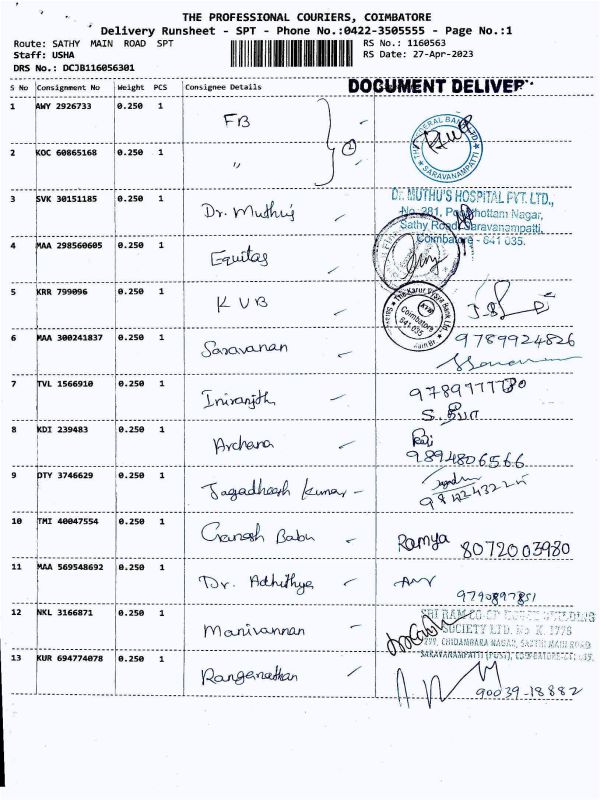 THE PROFESSIONAL COURIERS, COIMBATORE
Delivery Runsheet - SPT - Phone No.:0422-3505555 - Page No.:1
Route: SATHY MAIN ROAD SPT RS No.: 1160563
Staff: USHA RS Date: 27-Apr-2023
DRS No.: DCJB116056301
S No Consignment No Weight PCS Consignee Details DOCUMENT DELIVER
1 AWY 2926733 0.250 1 FB
2 KOC 60865168 0.250 1 〃 2
SARAVANAMPATTI
3 SVK 30151185 0.250 1 Dr. Muthu's
Dr. MUTHU'S HOSPITAL PVT. LTD.,
No. 281, Nagar,
Sathy Road, Saravanampatti,
Coimbatore - 641 035.
4 MAA 298560605 0.250 1 Equitas
5 KRR 799096 0.250 1 KVB
The Karur Vysya Bank Ltd.
Coimbatore
641 035
6 MAA 300241837 0.250 1 Saravanan 9789924826
7 TVL 1566910 0.250 1 Iniranjith
8 KDI 239483 0.250 1 Archana
9894806566
9 DTY 3746629 0.250 1 Jagadheesh Kumar
10 TMI 40047554 0.250 1 Ganesh Babu Ramya 8072003980
11 MAA 569548692 0.250 1 Dr. Adhithya
9790897851
12 NKL 3166871 0.250 1 Manivannan
SRI RAM CO-OP HOUSE BUILDING
SOCIETY LTD. No K. 1778
CHIDAMBARA NAGAR, SATHY MAIN ROAD
SARAVANAMPATTI (POST), COIMBATORE
13 KUR 694774078 0.250 1 Ranganathan
90039-18882